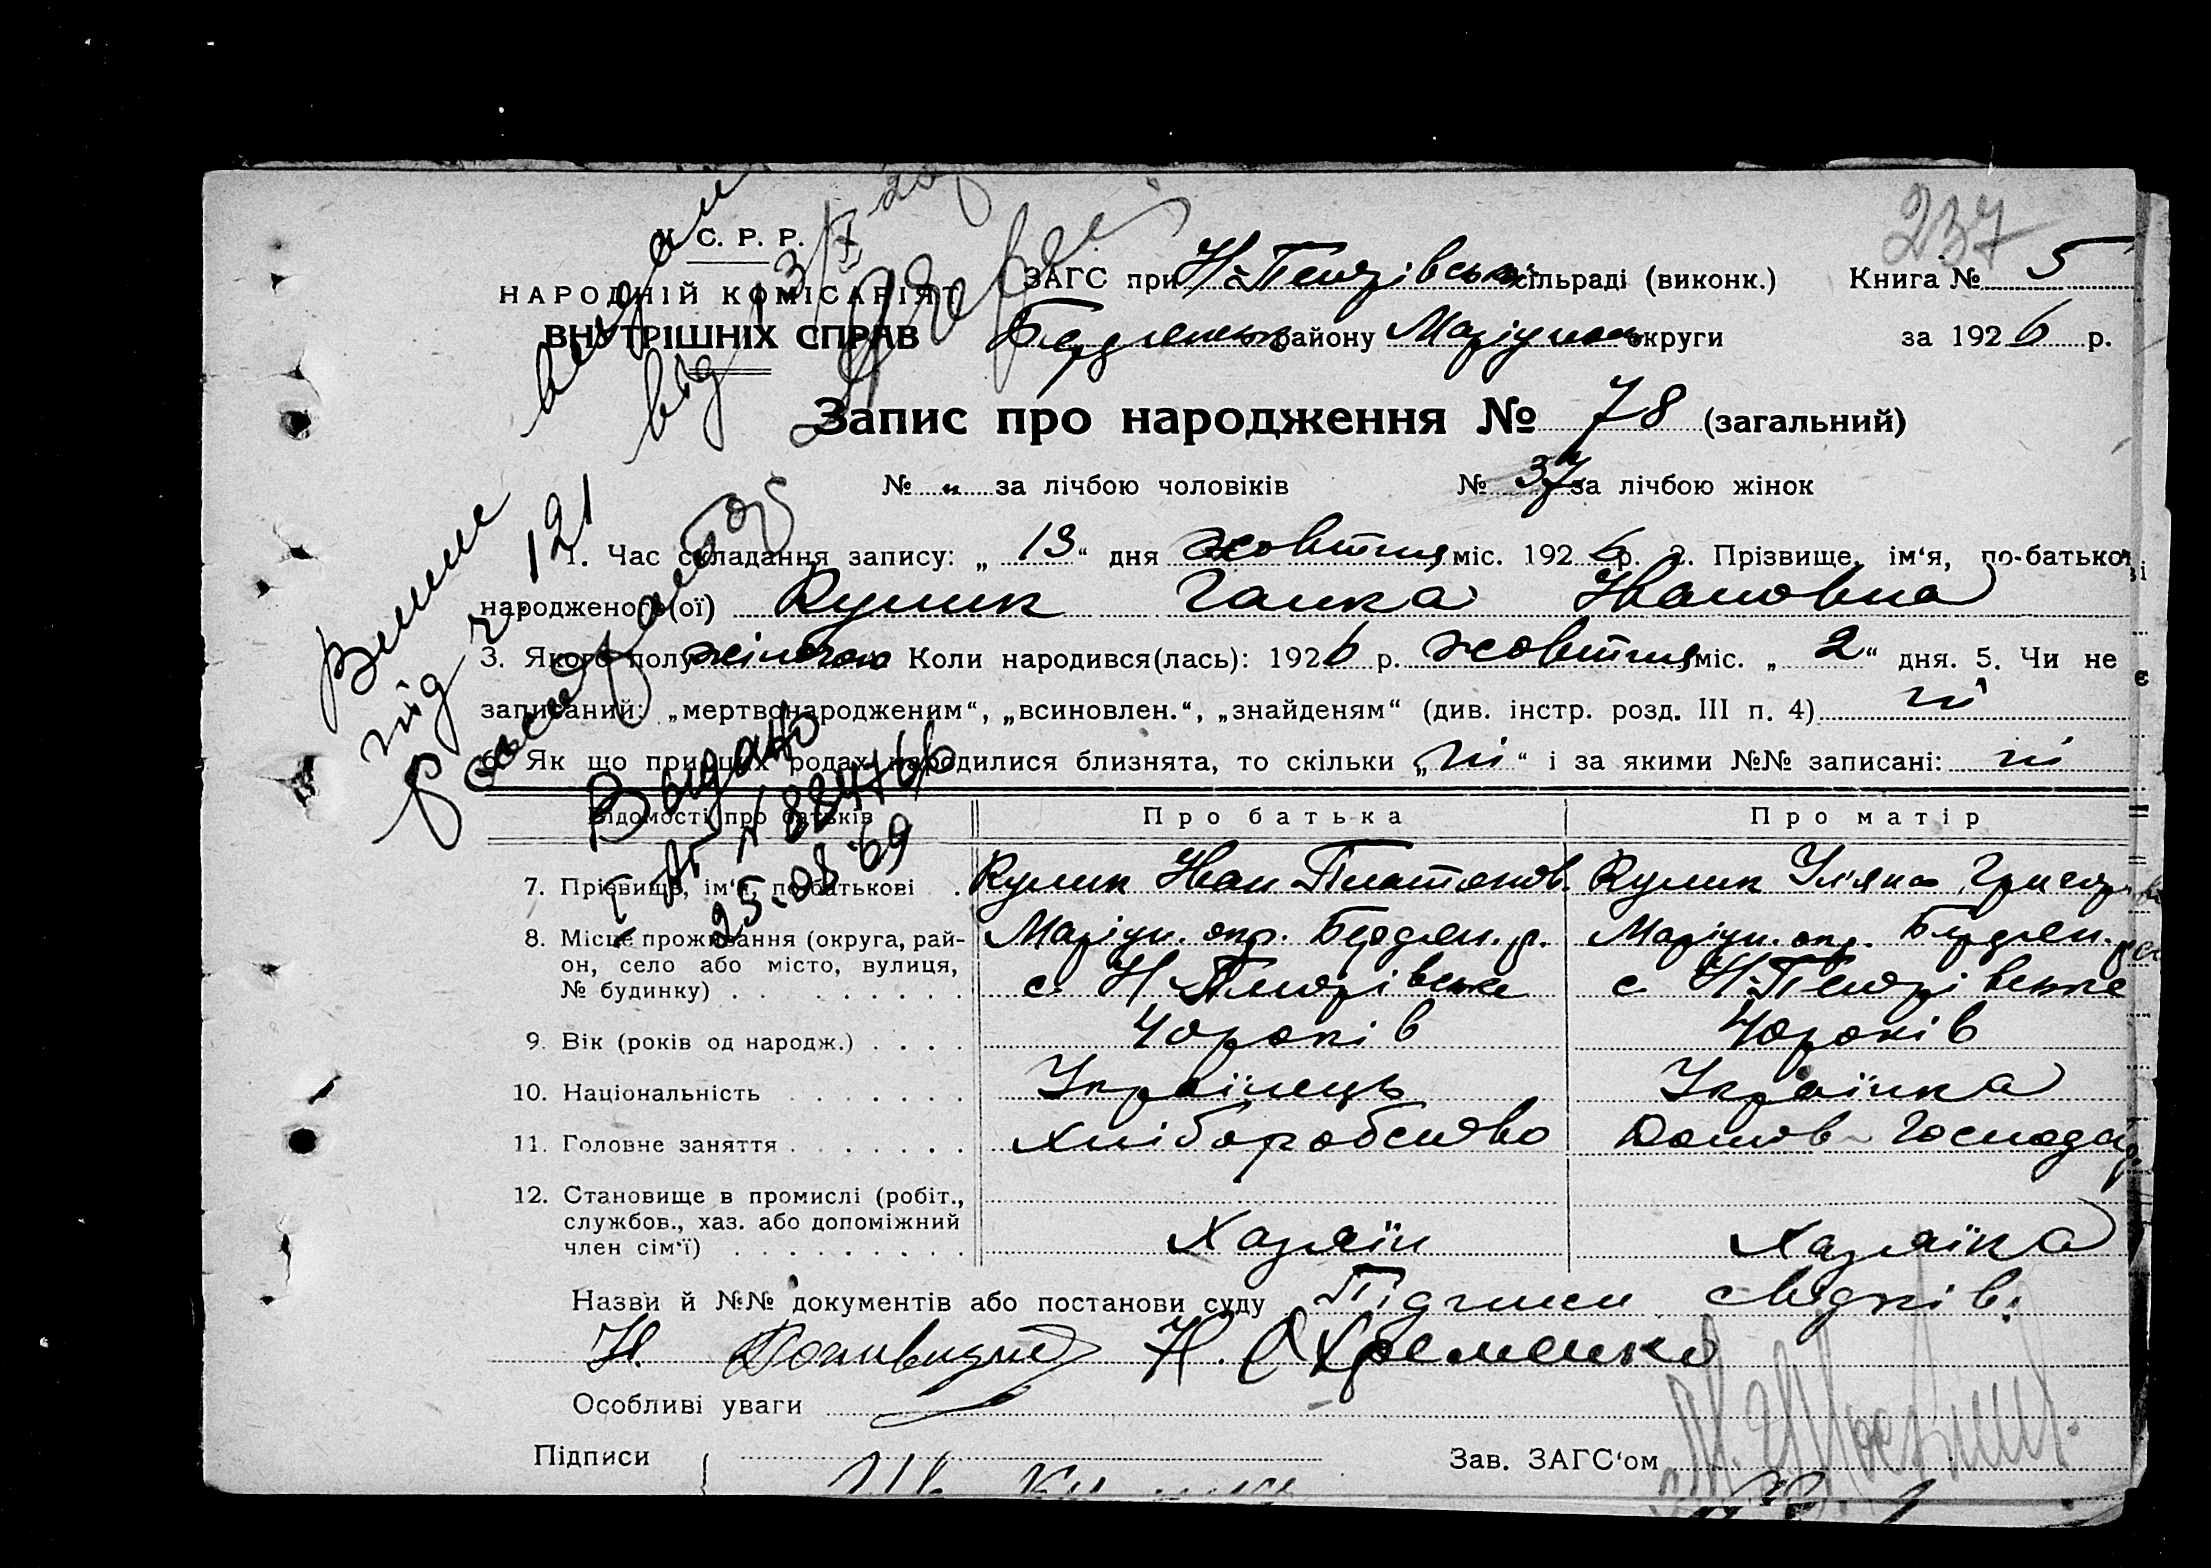 237
У. С. Р. Р.
НАРОДНІЙ КОМІСАРІЯТ
ВНУТРІШНІХ СПРАВ
ЗАГС при Н-Петрівські сільраді (виконк.) Книга № 5
Бердянськ району Маріупол округи за 1926 р.
Запис про народження № 78 (загальний)
№ „ за лічбою чоловіків № 37 за лічбою жінок
1. Час складання запису: „13“ дня жовтня міс. 1926 р. 2. Прізвище, ім‘я, по-батькові
народженого(ої) Кулик Ганка Ивановна
3. Якого полу жіночою Коли народився(лась): 1926 р. жовтня міс. „2“ дня. 5. Чи не є
записаний: „мертвонародженим“, „всиновлен.“, „знайденям“ (див. інстр. розд. III п. 4) ні
6. Як що при цих родах народилися близнята, то скільки „ні“ і за якими №№ записані: ні
Відомості про батьків Про батька Про матір
7. Прізвище, ім‘я, по-батькові Кулик Иван Платонов. Кулик Уляна Григор
8. Місце проживання (округа, рай-
он, село або місто, вулиця,
№ будинку)
Маріуп. окр. Бердян. р. Маріуп. окр. Бердян.
с. Н-Петрівське с Н-Петрівське
9. Вік (років од народж.) 40 років 40 років
10. Національність Українець Українка
11. Головне заняття Хліборобство Домов Господар.
12. Становище в промислі (робіт.,
службов., хаз. або допоміжний
член сім‘ї)
Хазяїн Хазяїка
Назви й №№ документів або постанови суду Підписи свідків:
Н. Н. Охременко
Особливі уваги
Підписи Зав. ЗАГС‘ом
від
під 121
Выдано
№ 884766
25.08.69